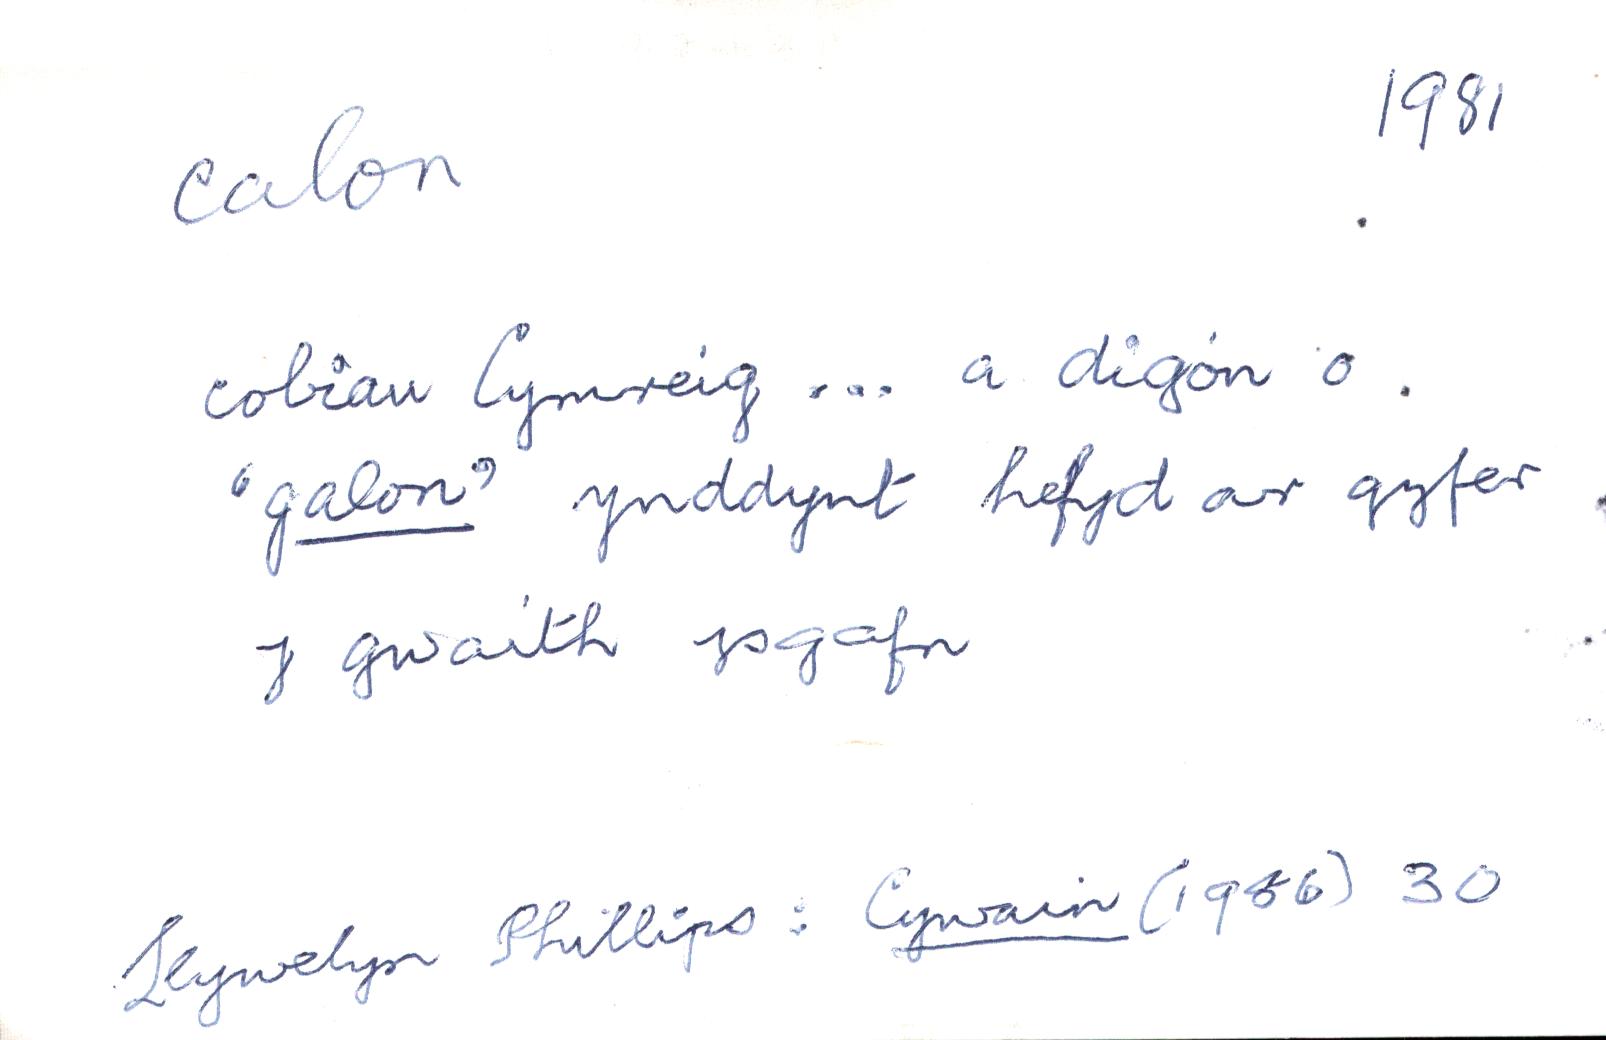 1981
calon
cobiau Cymreig ... a digon o
"galon" ynddynt hefyd ar gyfer
y gwaith ysgafn
Llywelyn Phillips : Cywain (1986) 30